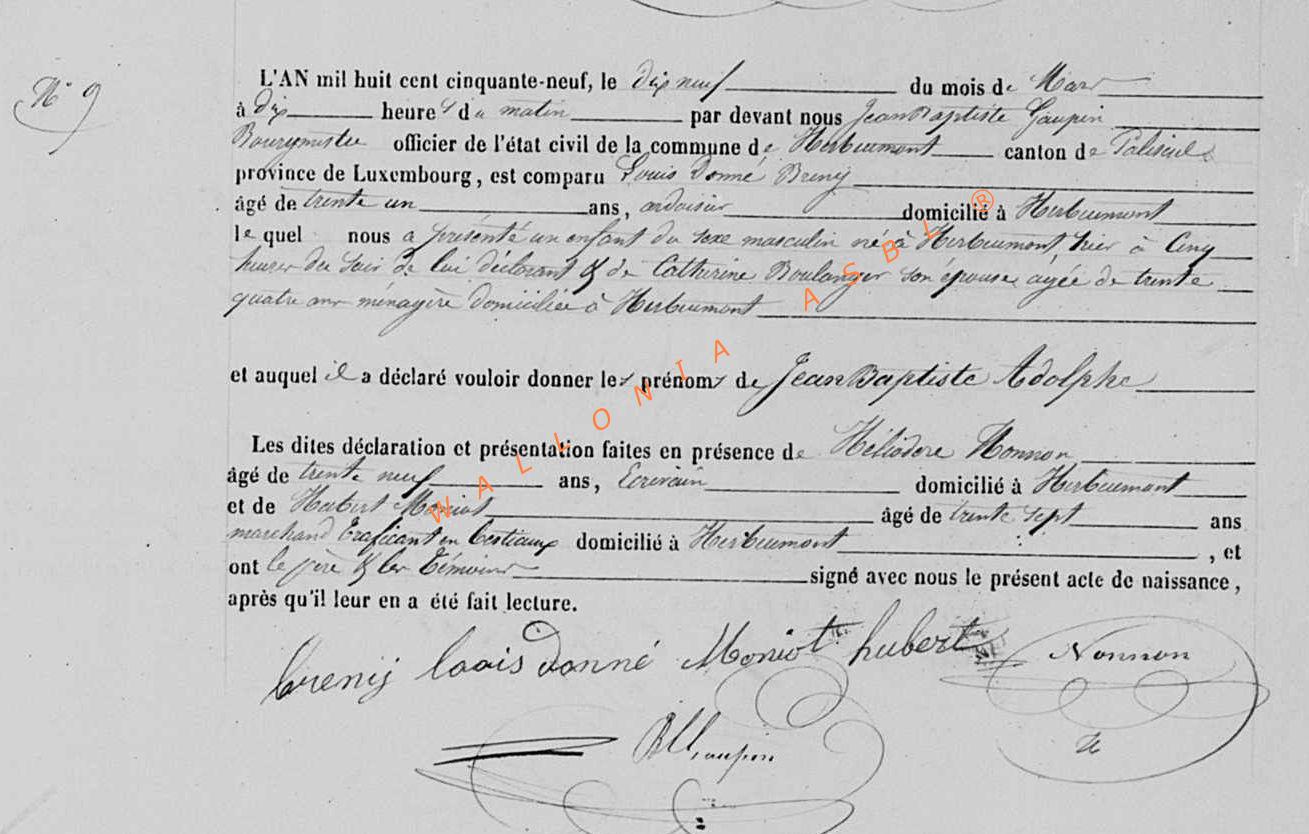 N° 9
L'AN mil huit cent cinquante-neuf, le dix neuf du mois de Mars
à dix heures du matin par devant nous Jean Baptiste Gaupin
Bourgmestre officier de l'état civil de la commune de Herbeumont canton de Paliseul
province de Luxembourg, est comparu Louis Donné Breny
âgé de trente un ans, ardoisier domicilié à Herbeumont
le quel nous a présenté un enfant du sexe masculin né à Herbeumont hier à Cinq
heures du soir de lui déclarant & de Catherine Boulanger son épouse agée de trente
quatre ans ménagère domiciliée à Herbeumont
et auquel il a déclaré vouloir donner les prénoms de Jean Baptiste Adolphe
Les dites déclaration et présentation faites en présence de Héliodore Nonnon
âgé de trente neuf ans, Ecrivain domicilié à Herbeumont
et de Hubert Moniot âgé de trente sept ans
marchand traficant en bestiaux domicilié à Herbeumont, et
ont le père & les témoins signé avec nous le présent acte de naissance,
après qu'il leur en a été fait lecture.
breny louis donné Moniot hubert Nonnon
WALLONIA ASBL ®